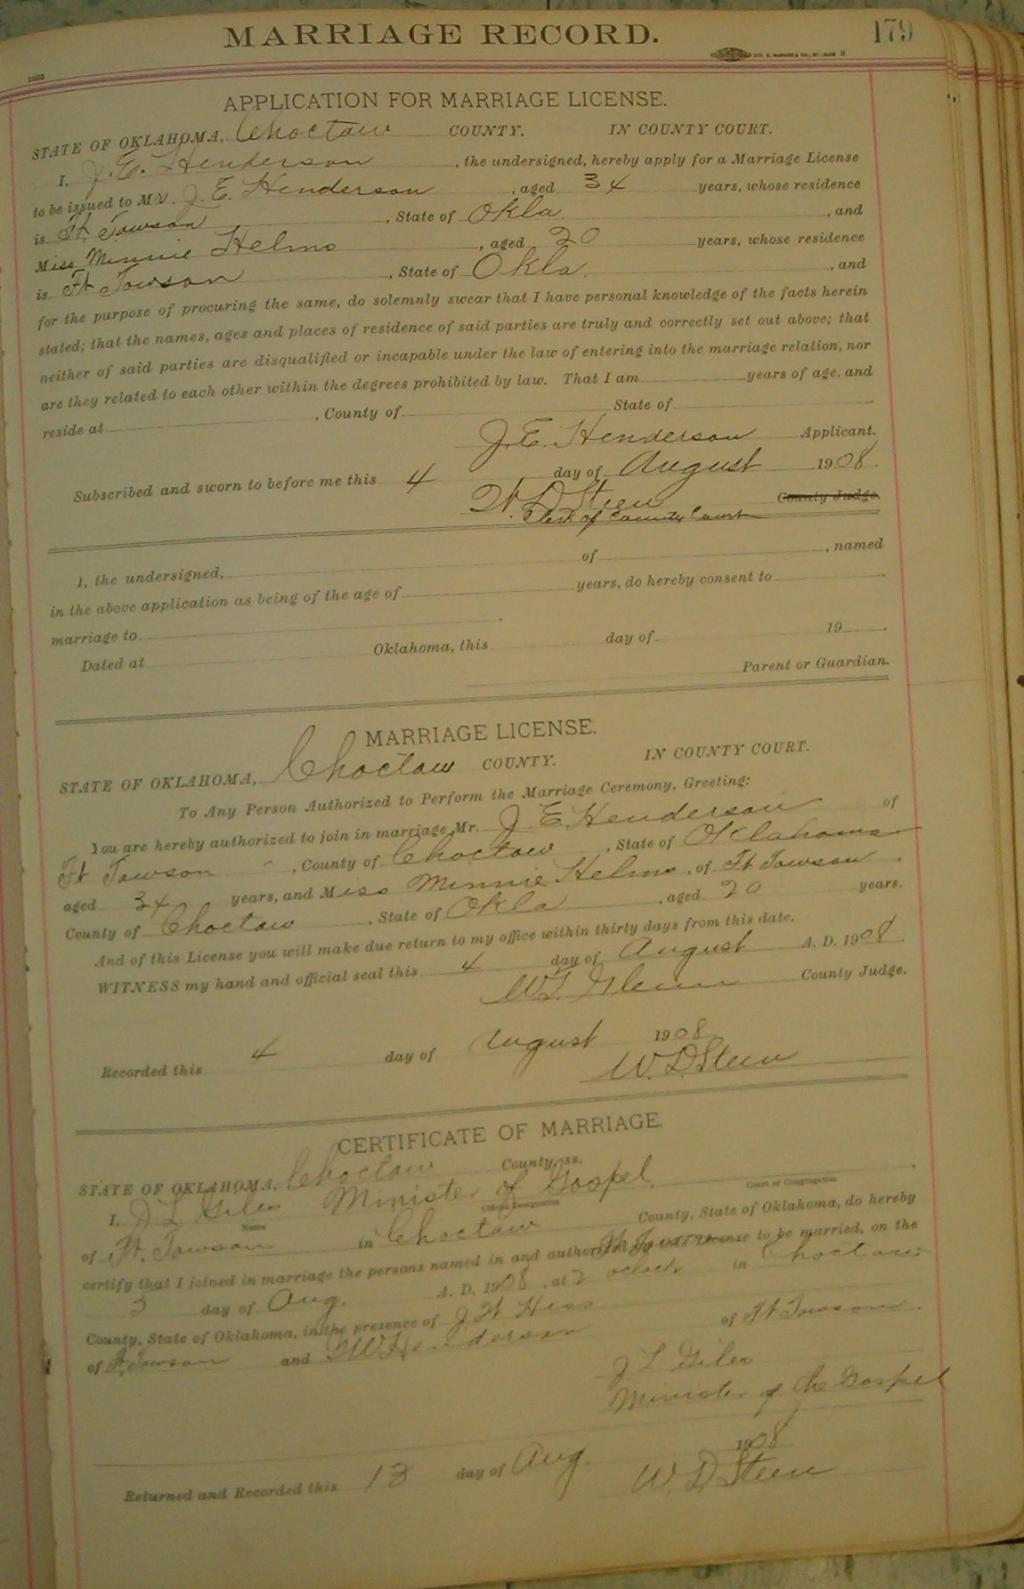 MARRIAGE RECORD. 179
APPLICATION FOR MARRIAGE LICENSE.
STATE OF OKLAHOMA, Choctaw COUNTY. IN COUNTY COURT.
I, J. E. Henderson, the undersigned, hereby apply for a Marriage License
to be issued to Mr. J. E. Henderson, aged 34 years, whose residence
is Ft. Towson, State of Okla, and
Miss Minnie Helms, aged 20 years, whose residence
is Ft Towson, State of Okla., and
for the purpose of procuring the same, do solemnly swear that I have personal knowledge of the facts herein
stated; that the names, ages and places of residence of said parties are truly and correctly set out above; that
neither of said parties are disqualified or incapable under the law of entering into the marriage relation, nor
are they related to each other within the degrees prohibited by law. That I am years of age, and
reside at , County of State of
J. E. Henderson Applicant.
Subscribed and sworn to before me this 4 day of August 1908.
W. D Steen County Judge.
Clerk of County Court
I, the undersigned, of , named
in the above application as being of the age of years, do hereby consent to
marriage to
Dated at Oklahoma, this day of 19
Parent or Guardian.
MARRIAGE LICENSE.
STATE OF OKLAHOMA, Choctaw COUNTY. IN COUNTY COURT.
To Any Person Authorized to Perform the Marriage Ceremony, Greeting:
You are hereby authorized to join in marriage Mr. J. E. Henderson of
Ft Towson, County of Choctaw, State of Oklahoma
aged 34 years, and Miss Minnie Helms, of Ft Towson,
County of Choctaw, State of Okla, aged 20 years.
And of this License you will make due return to my office within thirty days from this date.
WITNESS my hand and official seal this 4 day of August A. D. 1908
W. T. Glenn County Judge.
Recorded this 4 day of August 1908
W. D. Steen
CERTIFICATE OF MARRIAGE.
STATE OF OKLAHOMA, Choctaw County, ss.
I, J L Giles Minister of Gospel.
Name Court or Congregation
of Ft. Towson in Choctaw County, State of Oklahoma, do hereby
certify that I joined in marriage the persons named in and authorized by this License to be married, on the
5 day of Aug. A. D. 1908, at 2 oclock in Choctaw
County, State of Oklahoma, in the presence of J H Hess of Ft Towson.
of Ft. Towson and Henderson
J L Giles
Minister of the Gospel
Returned and Recorded this 13 day of Aug. 1908
W. D Steen